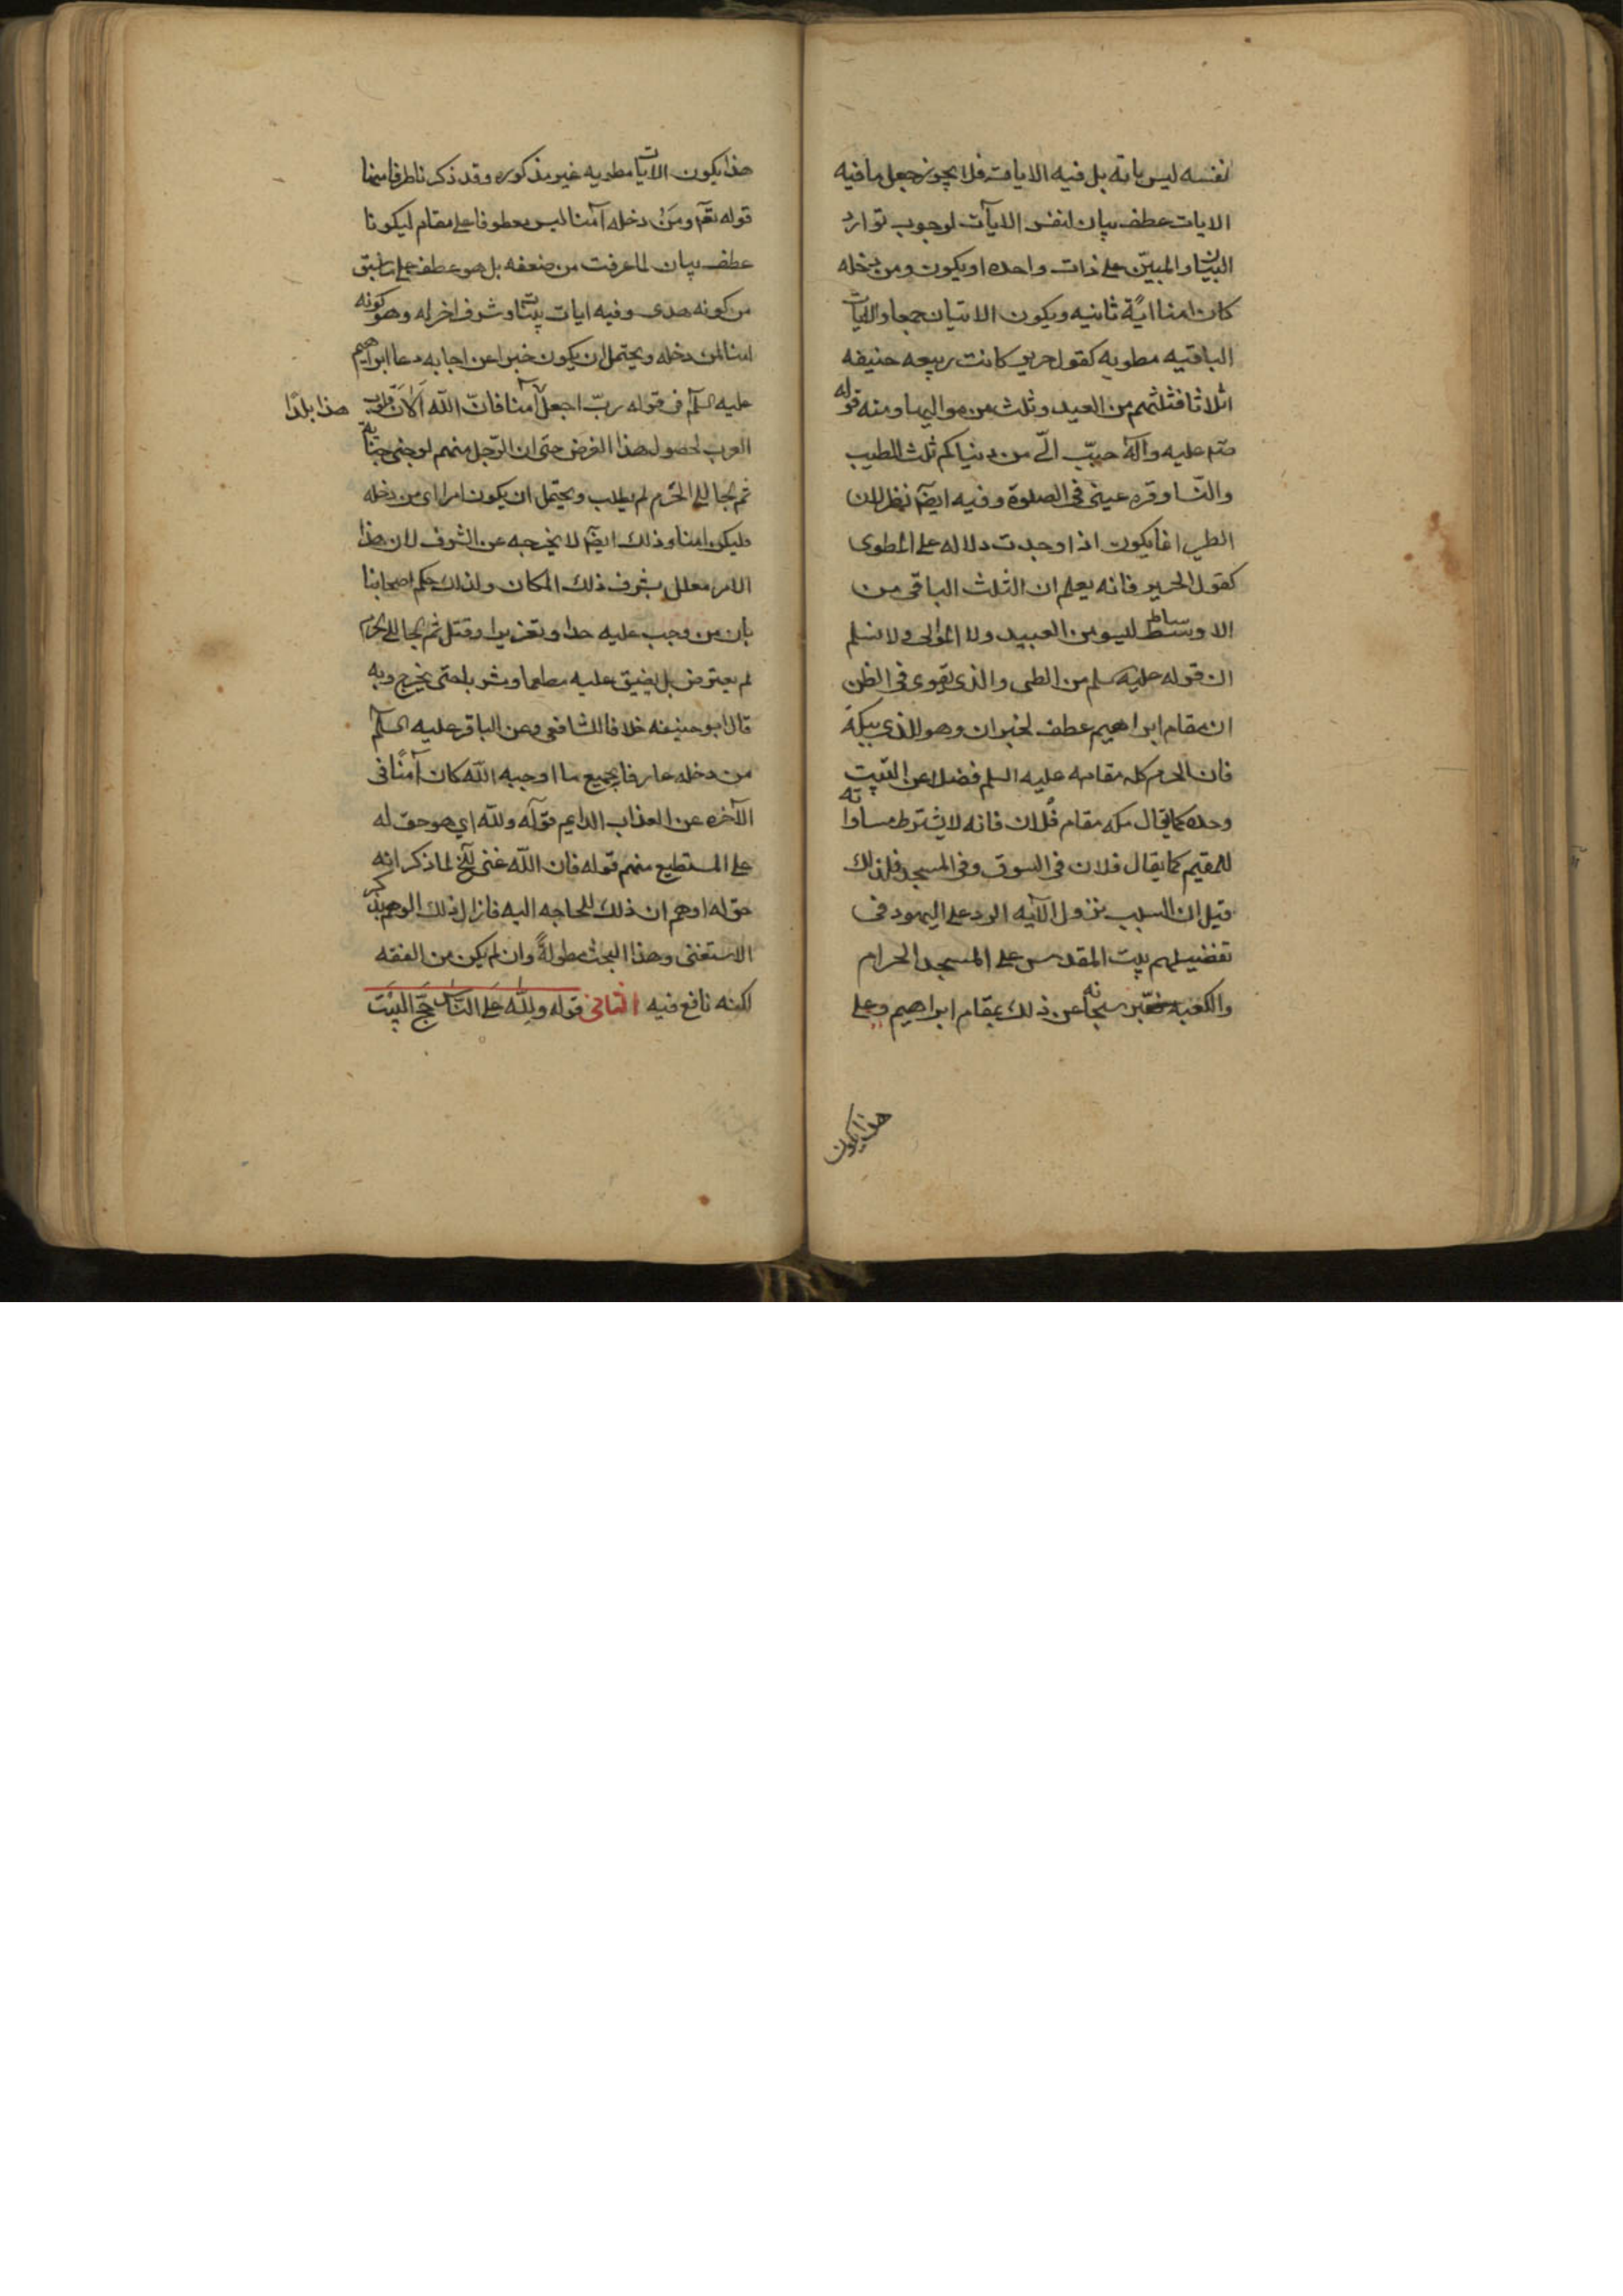 نفسه ليس باية بل فيه الايات فلا يجوز جعل ما فيه
الايات عطف بيان لنفس الايآت لوجوب توارد
البيان والمبيّن على ذات واحده او يكون ومن دخله
كان امنا ايًة ثانيه ويكون الاتيان جمعا والايات
الباقيه مطويه كقول جرير كانت ربيعه حنيفه
اثلاثا فثلثهم من العبيد وثلث من مواليها ومنه قوله
صلى عليه وآله حبّب الىّ من دنياكم ثلث الطيب
والنّسا وقره عينى فى الصلوة وفيه ايضا نظر لان
الطى انما يكون اذا وجدت دلاله على المطوى
كقول الجرير فانه يعلم ان الثلث الباقى من
الاوساط ليسو من العبيد ولا الموالى ولا نسلم
ان قوله عليه سلم من الطى والذى يقوى فى الظن
ان مقام ابراهيم عطف لخبر ان وهو للذى ببكة
فان الحرم كله مقامه عليه السلم فضلا عن البيت
وحده كما يقال مكه مقام فلان فانه لا يشترط مساواته
للمقيم كما يقال فلان فى السوق وفى المسجد فلذلك
قيل ان السبب بنزول الآيه الرد على اليهود فى
تفضيلهم بيت المقدس على المسجد الحرام
والكعبه فعبّر سبحانه عن ذلك بمقام ابراهيم وعلى
هذا يكون
هذا يكون الآيات مطويه غير مذكوره وقد ذكرنا طرفا منها
قوله تع ومَنْ دخله آمنا ليس معطوفا على مقام ليكونا
عطف بيان لما عرفت من ضعفه بل هو عطف على ما سبق
من كونه هدى وفيه ايات بينات وشرف اخر له وهو كونه
امنا لمن دخله ويحتمل ان يكون خبرا عن اجابه دعا ابراهيم
عليه السلم فى قوله ربّ اجعل آمنا فانّ اللّه اَلاَنَ قلوب
هذا بلدًا
العرب لحصول هذا الغرض حتى ان الرّجل منهم لو جنى جناية
ثم لجا الى الحرم لم يطلب ويحتمل ان يكون امرا اى من دخله
فليكن امنا وذلك ايضا لا يخرجه عن الشرف لان هذا
الامر معلل بشرف ذلك المكان ولذلك حكم اصحابنا
بان من وجب عليه حدا وتعزيرا وقتل ثم لجا الى الحرم
لم يعترض بل يضيق عليه مطعما ومشربا حتى يخرج وبه
قال ابو حنيفه خلافا للشافعى وعن الباقر عليه السلم
من دخله عارفا بجميع ما اوجبه اللّه كان آمنًا فى
الآخره عن العذاب الدايم قوله وللّه اي هو حق له
على المستطيع منهم قوله فان اللّه غنى آلخ لما ذكر انه
حق له اوهم ان ذلك للحاجه اليه فازال ذلك الوهم بذكر
الاستغنى وهذا البحث مطولةً وان لم يكن من الفقه
لكنه نافع فيه الثانى قوله وَلِلّٰه عَلَى النَّاسِ حِجّ البَيْتَ